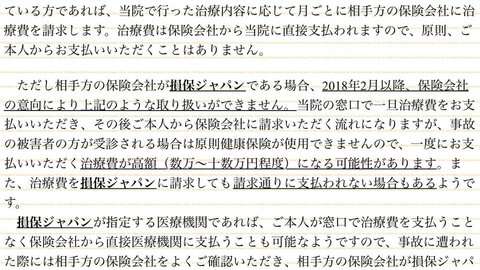 ている方であれば、当院で行った治療内容に応じて月ごとに相手方の保険会社に治
療費を請求します。治療費は保険会社から当院に直接支払われますので、原則、ご
本人からお支払いいただくことはありません。
ただし相手方の保険会社が損保ジャパンである場合、2018年2月以降、保険会社
の意向により上記のような取り扱いができません。当院の窓口で一旦治療費をお支
払いいただき、その後ご本人から保険会社に請求いただく流れになりますが、事故
の被害者の方が受診される場合は原則健康保険が使用できませんので、一度にお支
払いいただく治療費が高額（数万～十数万円程度）になる可能性があります。ま
た、治療費を損保ジャパンに請求しても請求通りに支払われない場合もあるようで
す。
損保ジャパンが指定する医療機関であれば、ご本人が窓口で治療費を支払うこと
なく保険会社から直接医療機関に支払うことも可能なようですので、事故に遭われ
た際には相手方の保険会社をよくご確認いただき、相手方の保険会社が損保ジャパ